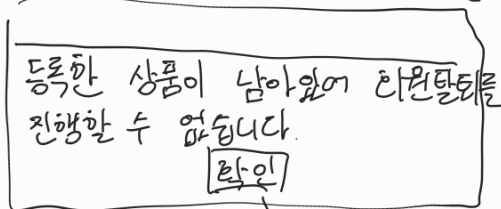 등록한 상품이 남아있어 회원탈퇴를
진행할 수 없습니다.
확인